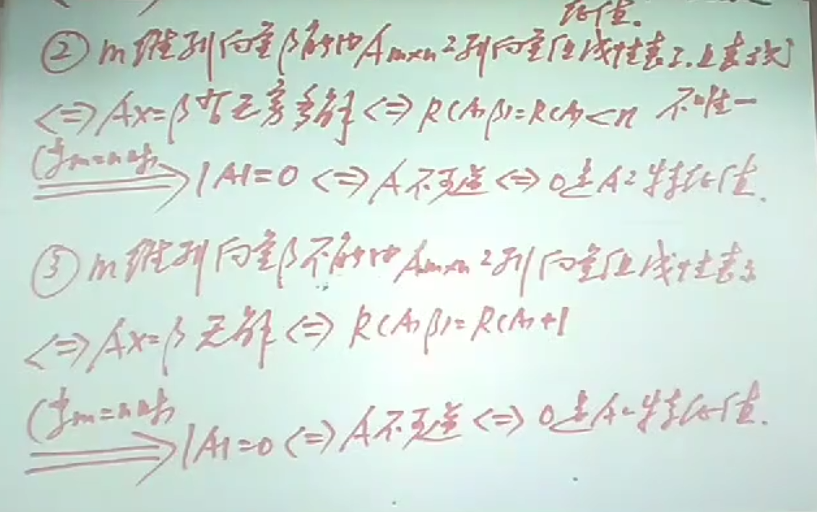 征值.
② m维列向量β能由Am×n之列向量组线性表示.且表示式
<=> Ax=β有无穷多解 <=> R(A,β)=R(A)<n 不唯一
(当m=n时) ⟹ |A|=0 <=> A不可逆 <=> 0是A之特征值.
③ m维列向量β不能由Am×n之列向量组线性表示
<=> Ax=β无解 <=> R(A,β)=R(A)+1
(当m=n时) ⟹ |A|=0 <=> A不可逆 <=> 0是A之特征值.